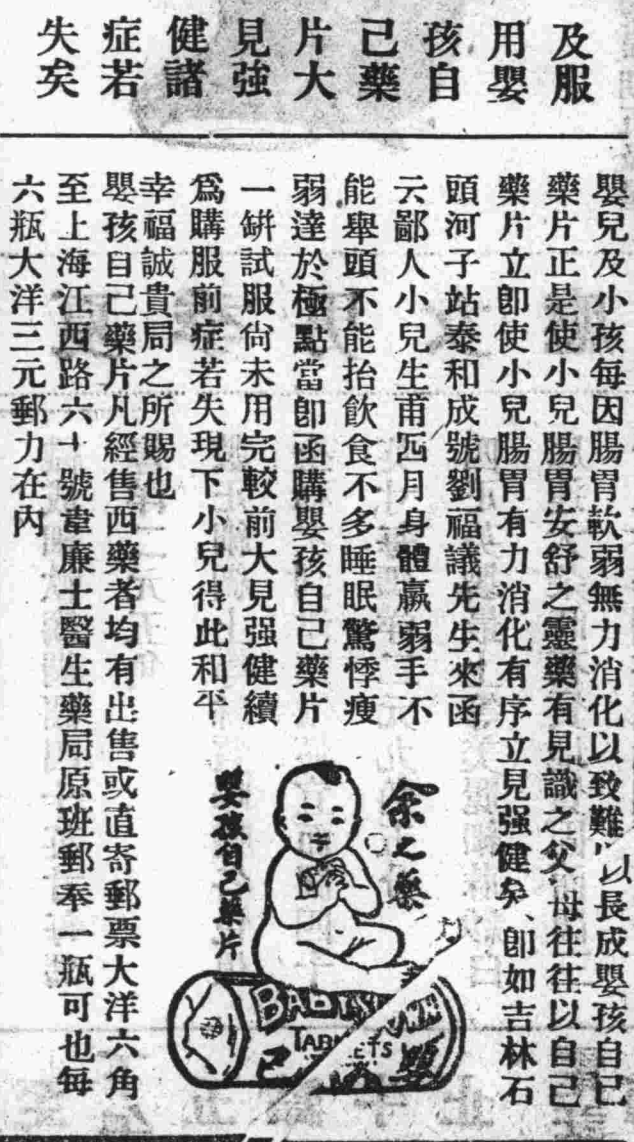 及服
用嬰
孩自
己藥
片大
見強
健諸
症若
失矣
嬰兒及小孩每因腸胃軟弱無力消化以致難以長成嬰孩自己
藥片正是使小兒腸胃安舒之靈藥有見識之父母往往以自己
藥片立卽使小兒腸胃有力消化有序立見强健矣、卽如吉林石
頭河子站泰和成號劉福議先生來函
云鄙人小兒生甫四月身體羸弱手不
能舉頭不能抬飲食不多睡眠驚悸瘦
弱達於極點當卽函購嬰孩自己藥片
一缾試服尙未用完較前大見强健續
爲購服前症若失現下小兒得此和平
幸福誠貴局之所賜也
嬰孩自己藥片凡經售西藥者均有出售或直寄郵票大洋六角
至上海江西路六十號韋廉士醫生藥局原班郵奉一瓶可也每
六瓶大洋三元郵力在內
余之藥
嬰孩自己藥片
BABY'S OWN
TABLETS
己 嬰